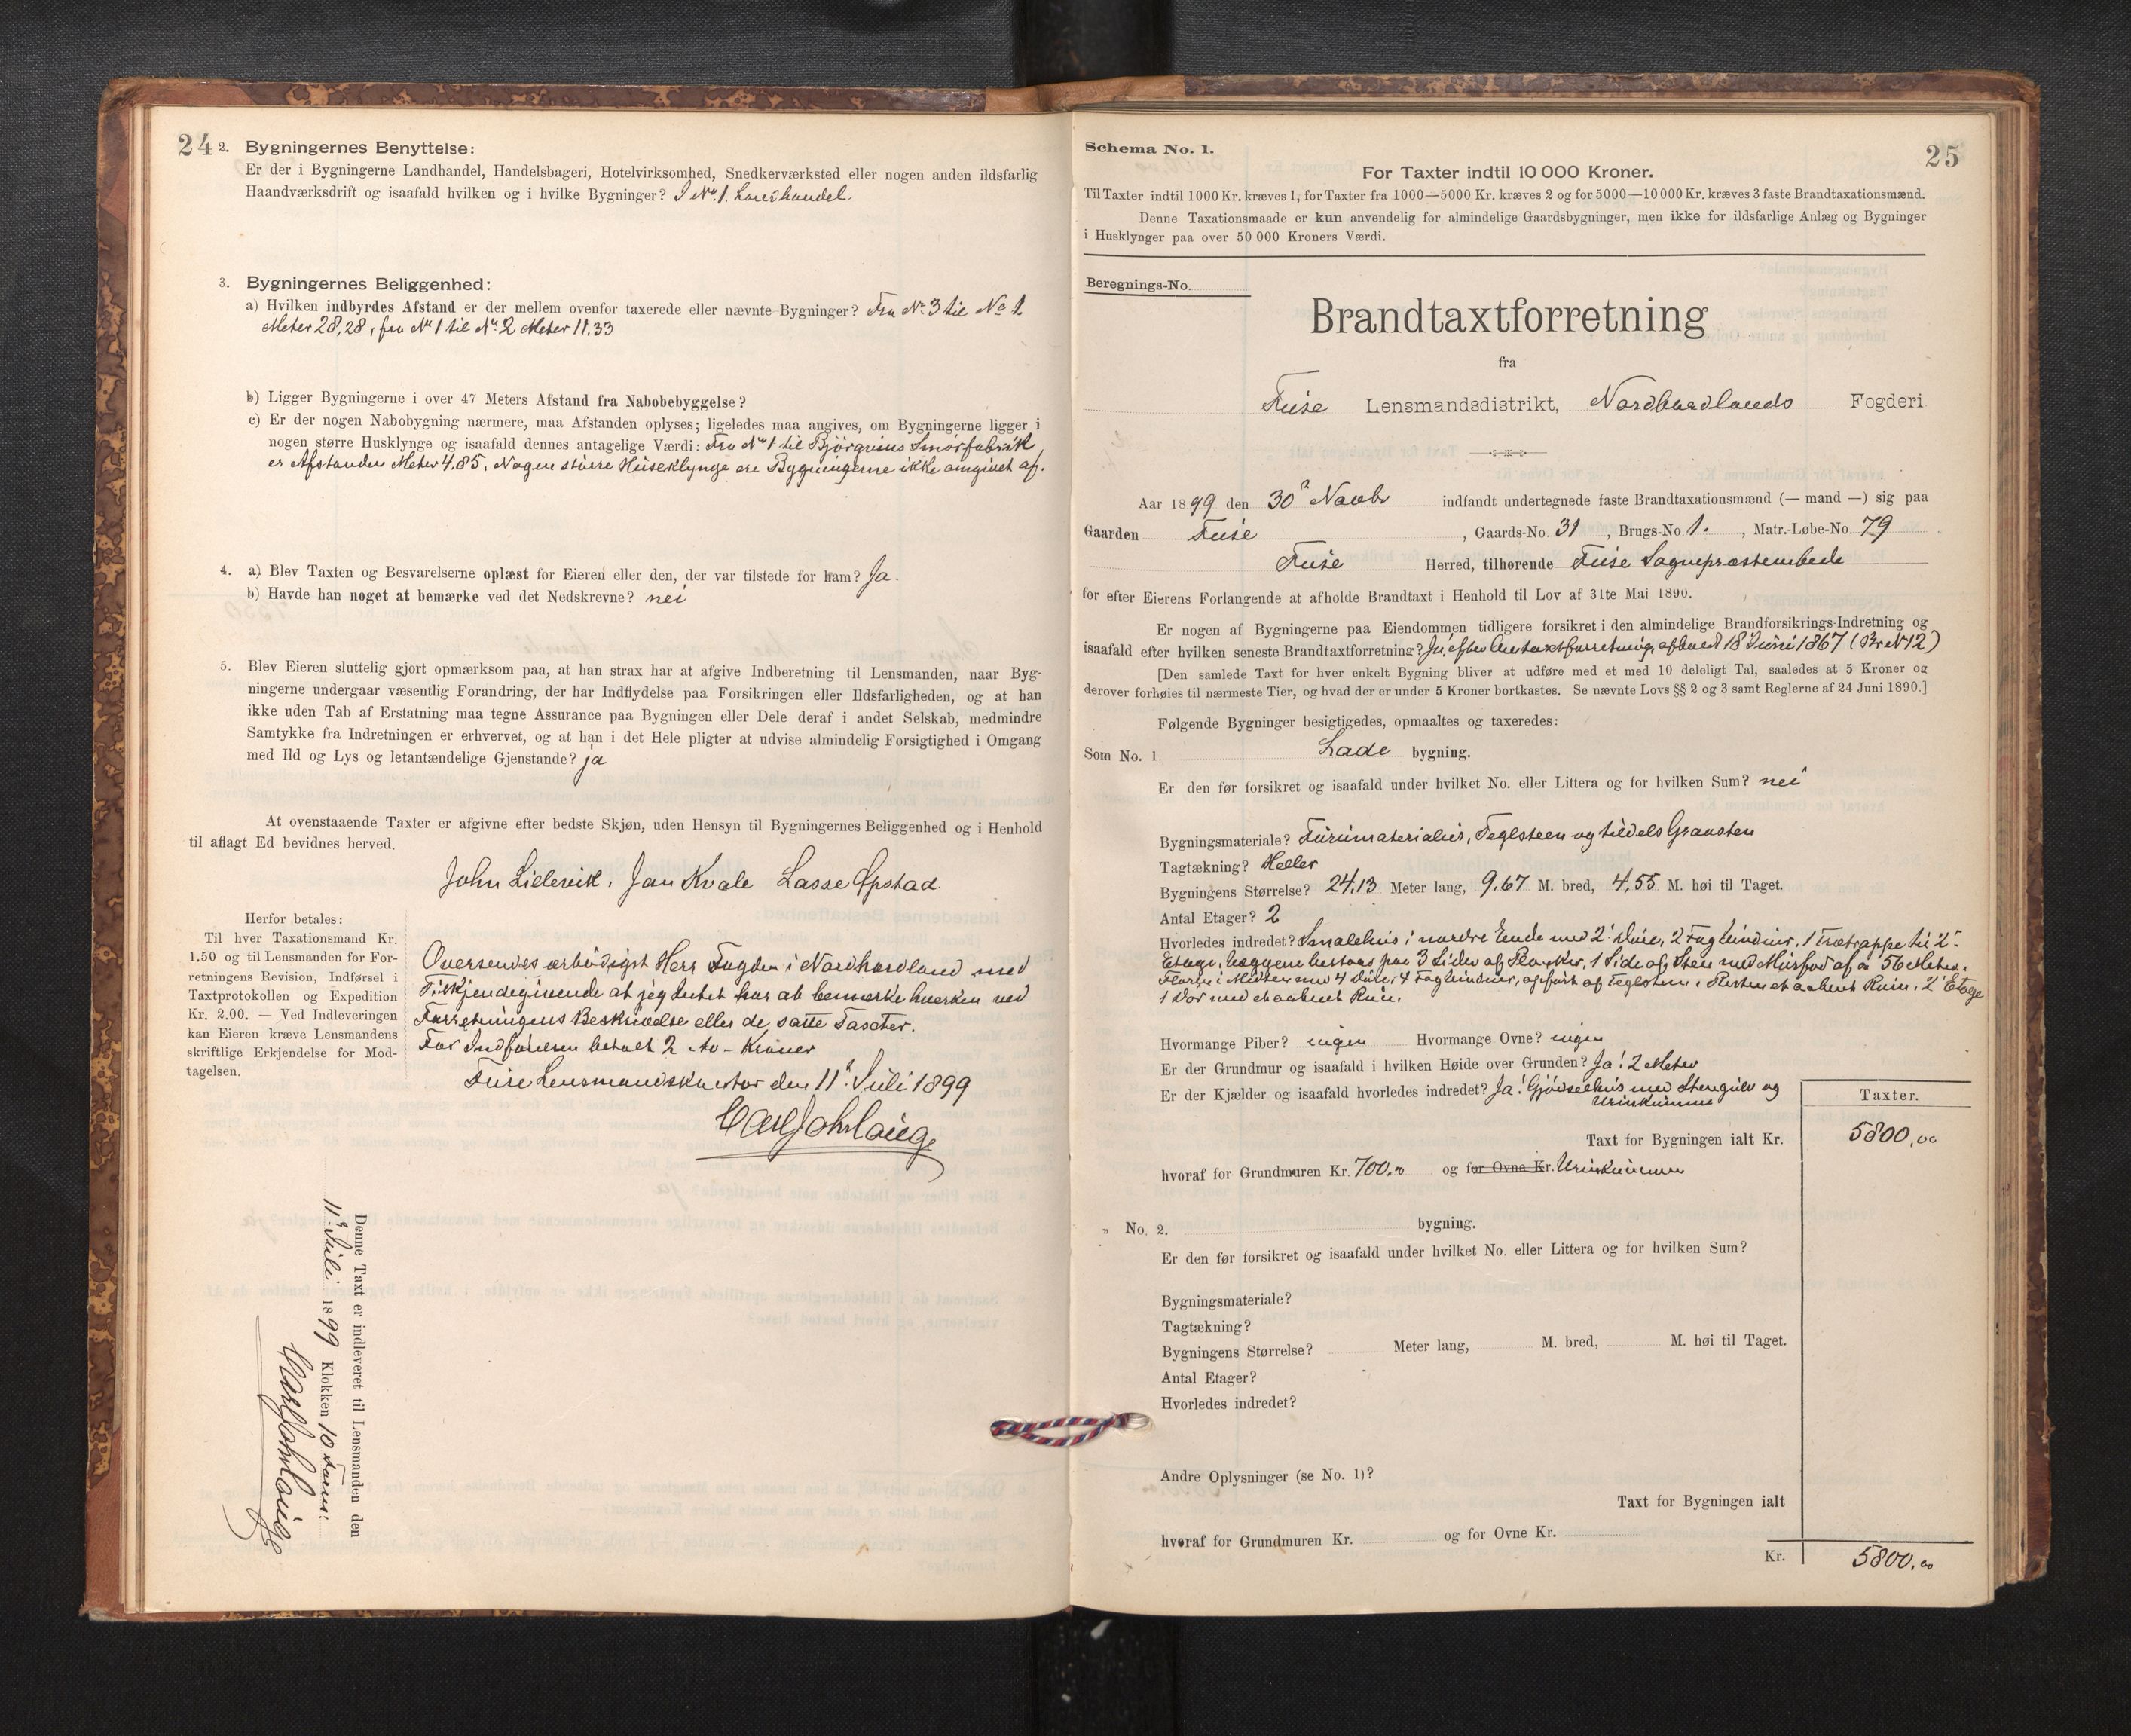 24
2. Bygningernes Benyttelse:
Er der i Bygningerne Landhandel, Handelsbageri, Hotelvirksomhed, Snedkerværksted eller nogen anden ildsfarlig
Haandværksdrift og isaafald hvilken og i hvilke Bygninger? I No. 1. Landhandel.
3. Bygningernes Beliggenhed:
a) Hvilken indbyrdes Afstand er der mellem ovenfor taxerede eller nævnte Bygninger? Fra No. 3 til No 1.
Meter 28,28, fra No 1 til No. 2 Meter 11.33
b) Ligger Bygningerne i over 47 Meters Afstand fra Nabobebyggelse?
c) Er der nogen Nabobygning nærmere, maa Afstanden oplyses; ligeledes maa angives, om Bygningerne ligger i
nogen større Husklynge og isaafald dennes antagelige Værdi: Fra No 1 til Bjørgvins Smørfabrik
er Afstanden Meter 4.85. Nogen større Huseklynge ere Bygningerne ikke omgivet af.
4. a) Blev Taxten og Besvarelserne oplæst for Eieren eller den, der var tilstede for ham? Ja.
b) Havde han noget at bemærke ved det Nedskrevne? nei
5. Blev Eieren sluttelig gjort opmærksom paa, at han strax har at afgive Indberetning til Lensmanden, naar Byg-
ningerne undergaar væsentlig Forandring, der har Indflydelse paa Forsikringen eller Ildsfarligheden, og at han
ikke uden Tab af Erstatning maa tegne Assurance paa Bygningen eller Dele deraf i andet Selskab, medmindre
Samtykke fra Indretningen er erhvervet, og at han i det Hele pligter at udvise almindelig Forsigtighed i Omgang
med Ild og Lys og letantændelige Gjenstande? ja
At ovenstaaende Taxter er afgivne efter bedste Skjøn, uden Hensyn til Bygningernes Beliggenhed og i Henhold
til aflagt Ed bevidnes herved.
John Lidervik. Jan Kvale Lasse Opstad.
Herfor betales:
Til hver Taxationsmand Kr.
1.50 og til Lensmanden for For-
retningens Revision, Indførsel i
Taxtprotokollen og Expedition
Kr. 2.00. — Ved Indleveringen
kan Eieren kræve Lensmandens
skriftlige Erkjendelse for Mod-
tagelsen.
Oversendes ærbødigst Herr Fogden i Nordhordland med
Tilkjendegivende at jeg Intet har at bemærke hverken ved
Forretningens Beskrivelse eller de satte Taxter.
For Indførelsen betalt 2 to Kroner
Fuse Lensmandskontor den 11. Juli 1899
Carl Joh Lauge
Denne Taxt er indleveret til Lensmanden den
11. Juli 1899 Klokken 10 Form:
Carl Joh Lauge
25
Schema No. 1.
For Taxter indtil 10 000 Kroner.
Til Taxter indtil 1000 Kr. kræves 1, for Taxter fra 1000—5000 Kr. kræves 2 og for 5000—10 000 Kr. kræves 3 faste Brandtaxationsmænd.
Denne Taxationsmaade er kun anvendelig for almindelige Gaardsbygninger, men ikke for ildsfarlige Anlæg og Bygninger
i Husklynger paa over 50 000 Kroners Værdi.
Beregnings-No.
Brandtaxtforretning
fra
Fuse Lensmandsdistrikt, Nordhordlands Fogderi
Aar 1899 den 30 Novbr indfandt undertegnede faste Brandtaxationsmænd (— mand —) sig paa
Gaarden Fuse, Gaards-No. 31, Brugs-No. 1., Matr.-Løbe-No. 79
Fuse Herred, tilhørende Fuse Sognepræstembede
for efter Eierens Forlangende at afholde Brandtaxt i Henhold til Lov af 31te Mai 1890.
Er nogen af Bygningerne paa Eiendommen tidligere forsikret i den almindelige Brandforsikrings-Indretning og
isaafald efter hvilken seneste Brandtaxtforretning? Ja, efter Omtaxtforretning afholdt 18 Juni 1867 (Br No 12)
[Den samlede Taxt for hver enkelt Bygning bliver at udføre med et med 10 deleligt Tal, saaledes at 5 Kroner og
derover forhøies til nærmeste Tier, og hvad der er under 5 Kroner bortkastes. Se nævnte Lovs §§ 2 og 3 samt Reglerne af 24 Juni 1890.]
Følgende Bygninger besigtigedes, opmaaltes og taxeredes:
Som No. 1. Lade bygning.
Er den før forsikret og isaafald under hvilket No. eller Littera og for hvilken Sum? nei
Bygningsmateriale? Furumaterialier, Teglsteen og tildels Graasten
Tagtækning? Heller
Bygningens Størrelse? 24,13 Meter lang, 9,67 M. bred, 4,55 M. høi til Taget.
Antal Etager? 2
Hvorledes indredet? Smalehus i nordre Ende med 2 Døre, 2 Fag Vinduer, 1 Trætrappe til 2
Etage, Væggene bestaar paa 3 Sider af Planker, 1 Side af Sten med Murfod af 56 Meter.
Floren i Midten med 4 Døre, 4 Fag Vinduer, opført af Teglsten. Resten et aabent Rum. 2 Etage
1 Dør med et aabent Rum.
Hvormange Piber? ingen Hvormange Ovne? ingen
Er der Grundmur og isaafald i hvilken Høide over Grunden? Ja! 2 Meter
Er der Kjælder og isaafald hvorledes indredet? Ja! Gjødselhus med Stengulv og
Urinkumme
Taxter.
Taxt for Bygningen ialt Kr. 5800,00
hvoraf for Grundmuren Kr. 700.00 og for Ovne Kr. Urinkummen
„ No. 2. bygning.
Er den før forsikret og isaafald under hvilket No. eller Littera og for hvilken Sum?
Bygningsmateriale?
Tagtækning?
Bygningens Størrelse? Meter lang, M. bred, M. høi til Taget.
Antal Etager?
Hvorledes indredet?
Andre Oplysninger (se No. 1)?
Taxt for Bygningen ialt
hvoraf for Grundmuren Kr. og for Ovne Kr.
Kr. 5800.00